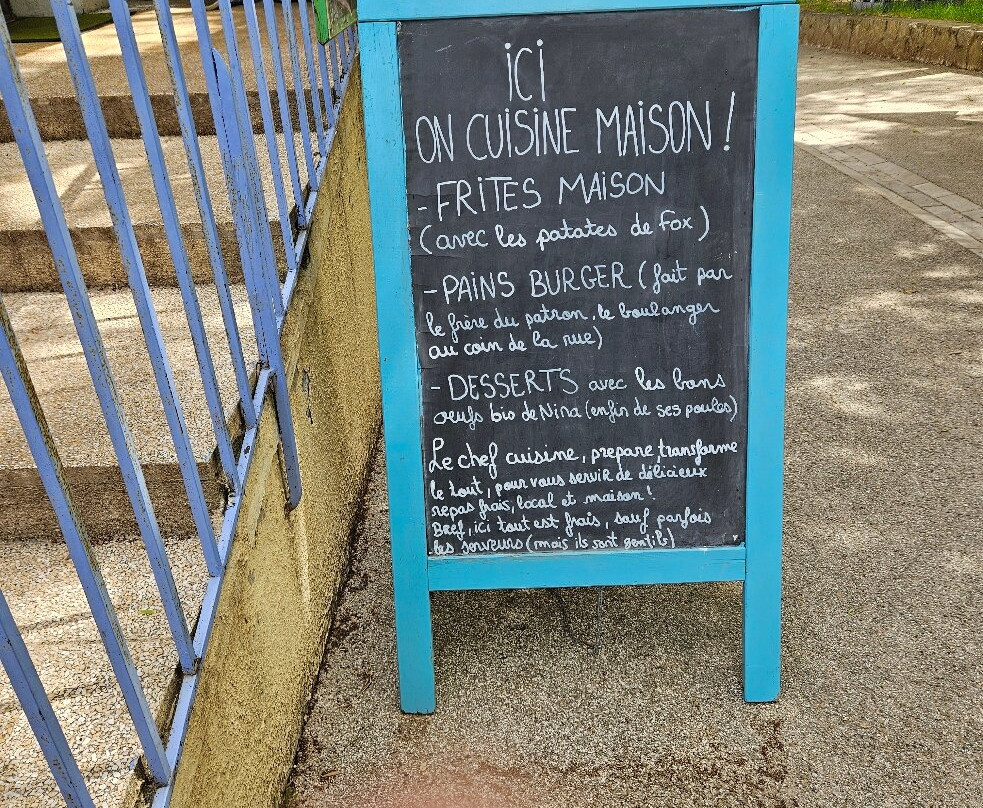 ici
ON CUISINE MAISON !
- FRITES MAISON
(avec les patates de Fox)
- PAINS BURGER (fait par
le frère du patron, le boulanger
au coin de la rue)
- DESSERTS avec les bons
oeufs bio de Nina (enfin de ses poules)
Le chef cuisine, prepare transforme
le tout, pour vous servir de délicieux
repas frais, local et maison !
Bref, ici tout est frais, sauf parfois
les serveurs (mais ils sont gentils)